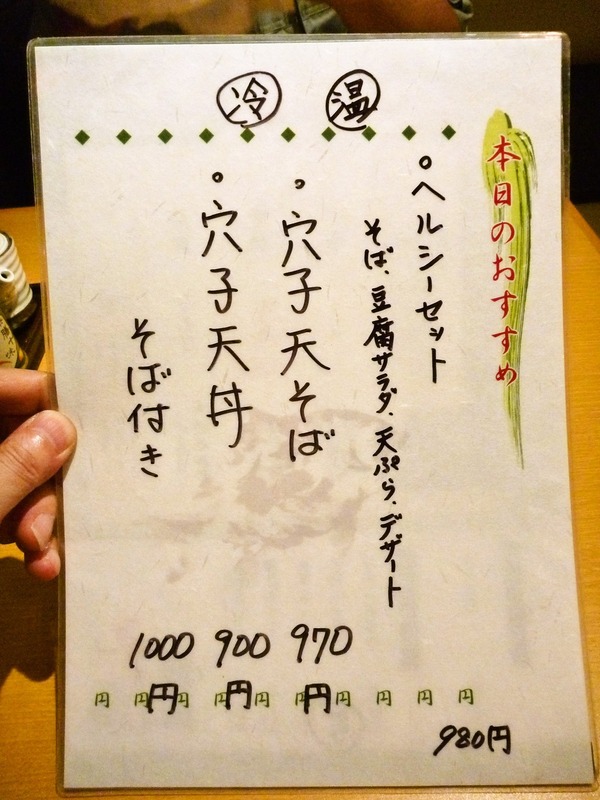 本日のおすすめ
温
冷
。ヘルシーセット
そば、豆腐サラダ、天ぷら、デザート
。穴子天そば
。穴子天丼
そば付き
970
円
900
円
1000
円
円 円 円 円 円 円 円 円 円 円
980円